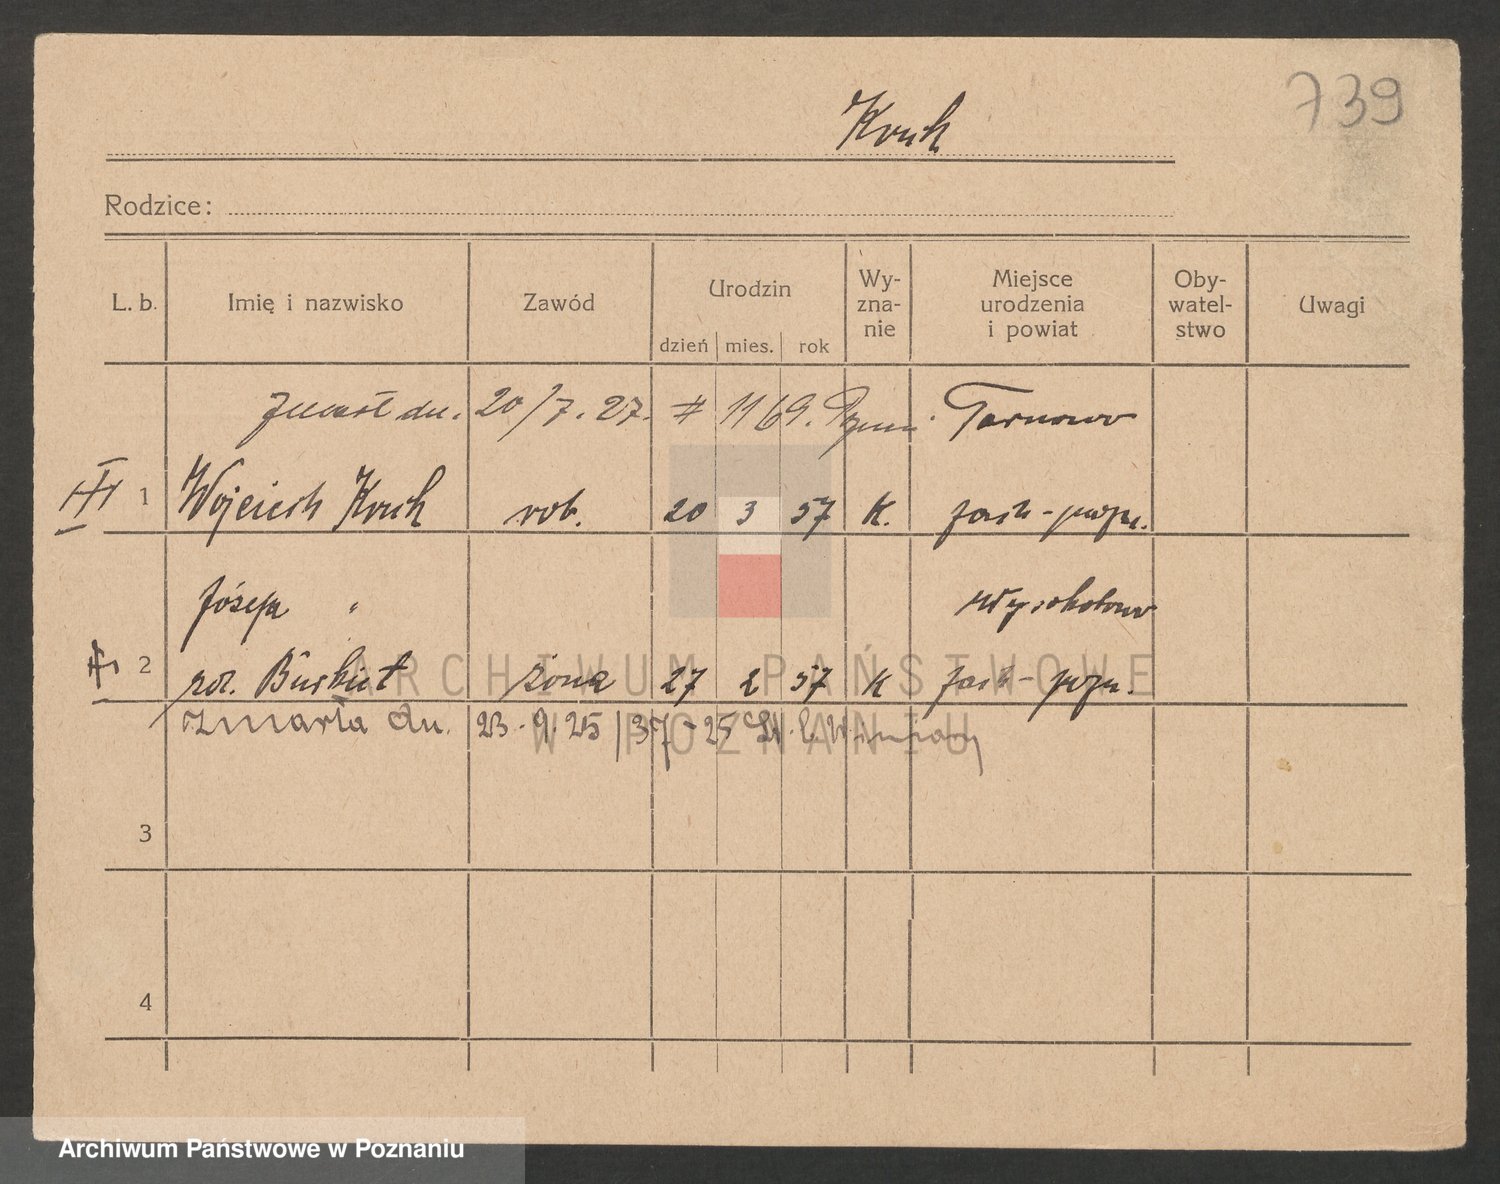 739
Kruk
Rodzice:
L. b.
Imię i nazwisko
Zawód
Urodzin
dzień mies. rok
Wy-
zna-
nie
Miejsce
urodzenia
i powiat
Oby-
watel-
stwo
Uwagi
zmarł dn. 20/7. 27. # 1169. Tarnowo
1 Wojciech Kruk rob. 20 3 57 K.
Józefa "
2 żona 27 2 57 K
zmarła dn. 23. 9. 25 / 37 - 25
3
4
ARCHIWUM PAŃSTWOWE
W POZNANIU
Archiwum Państwowe w Poznaniu